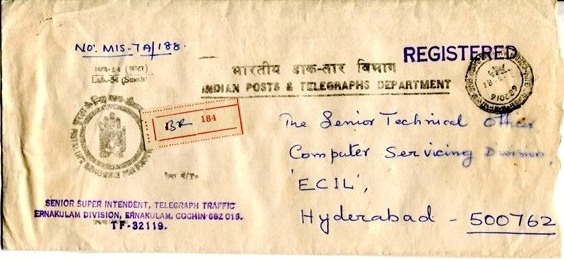 No. MIS-TA/188.
REGISTERED
भारतीय डाक-तार विभाग
INDIAN POSTS & TELEGRAPHS DEPARTMENT
BR 184
The Senior Technical Officer
Computer Servicing Division,
'ECIL',
Hyderabad - 500762
SENIOR SUPER INTENDENT, TELEGRAPH TRAFFIC
ERNAKULAM DIVISION, ERNAKULAM, COCHIN-682 015.
TF-32119.